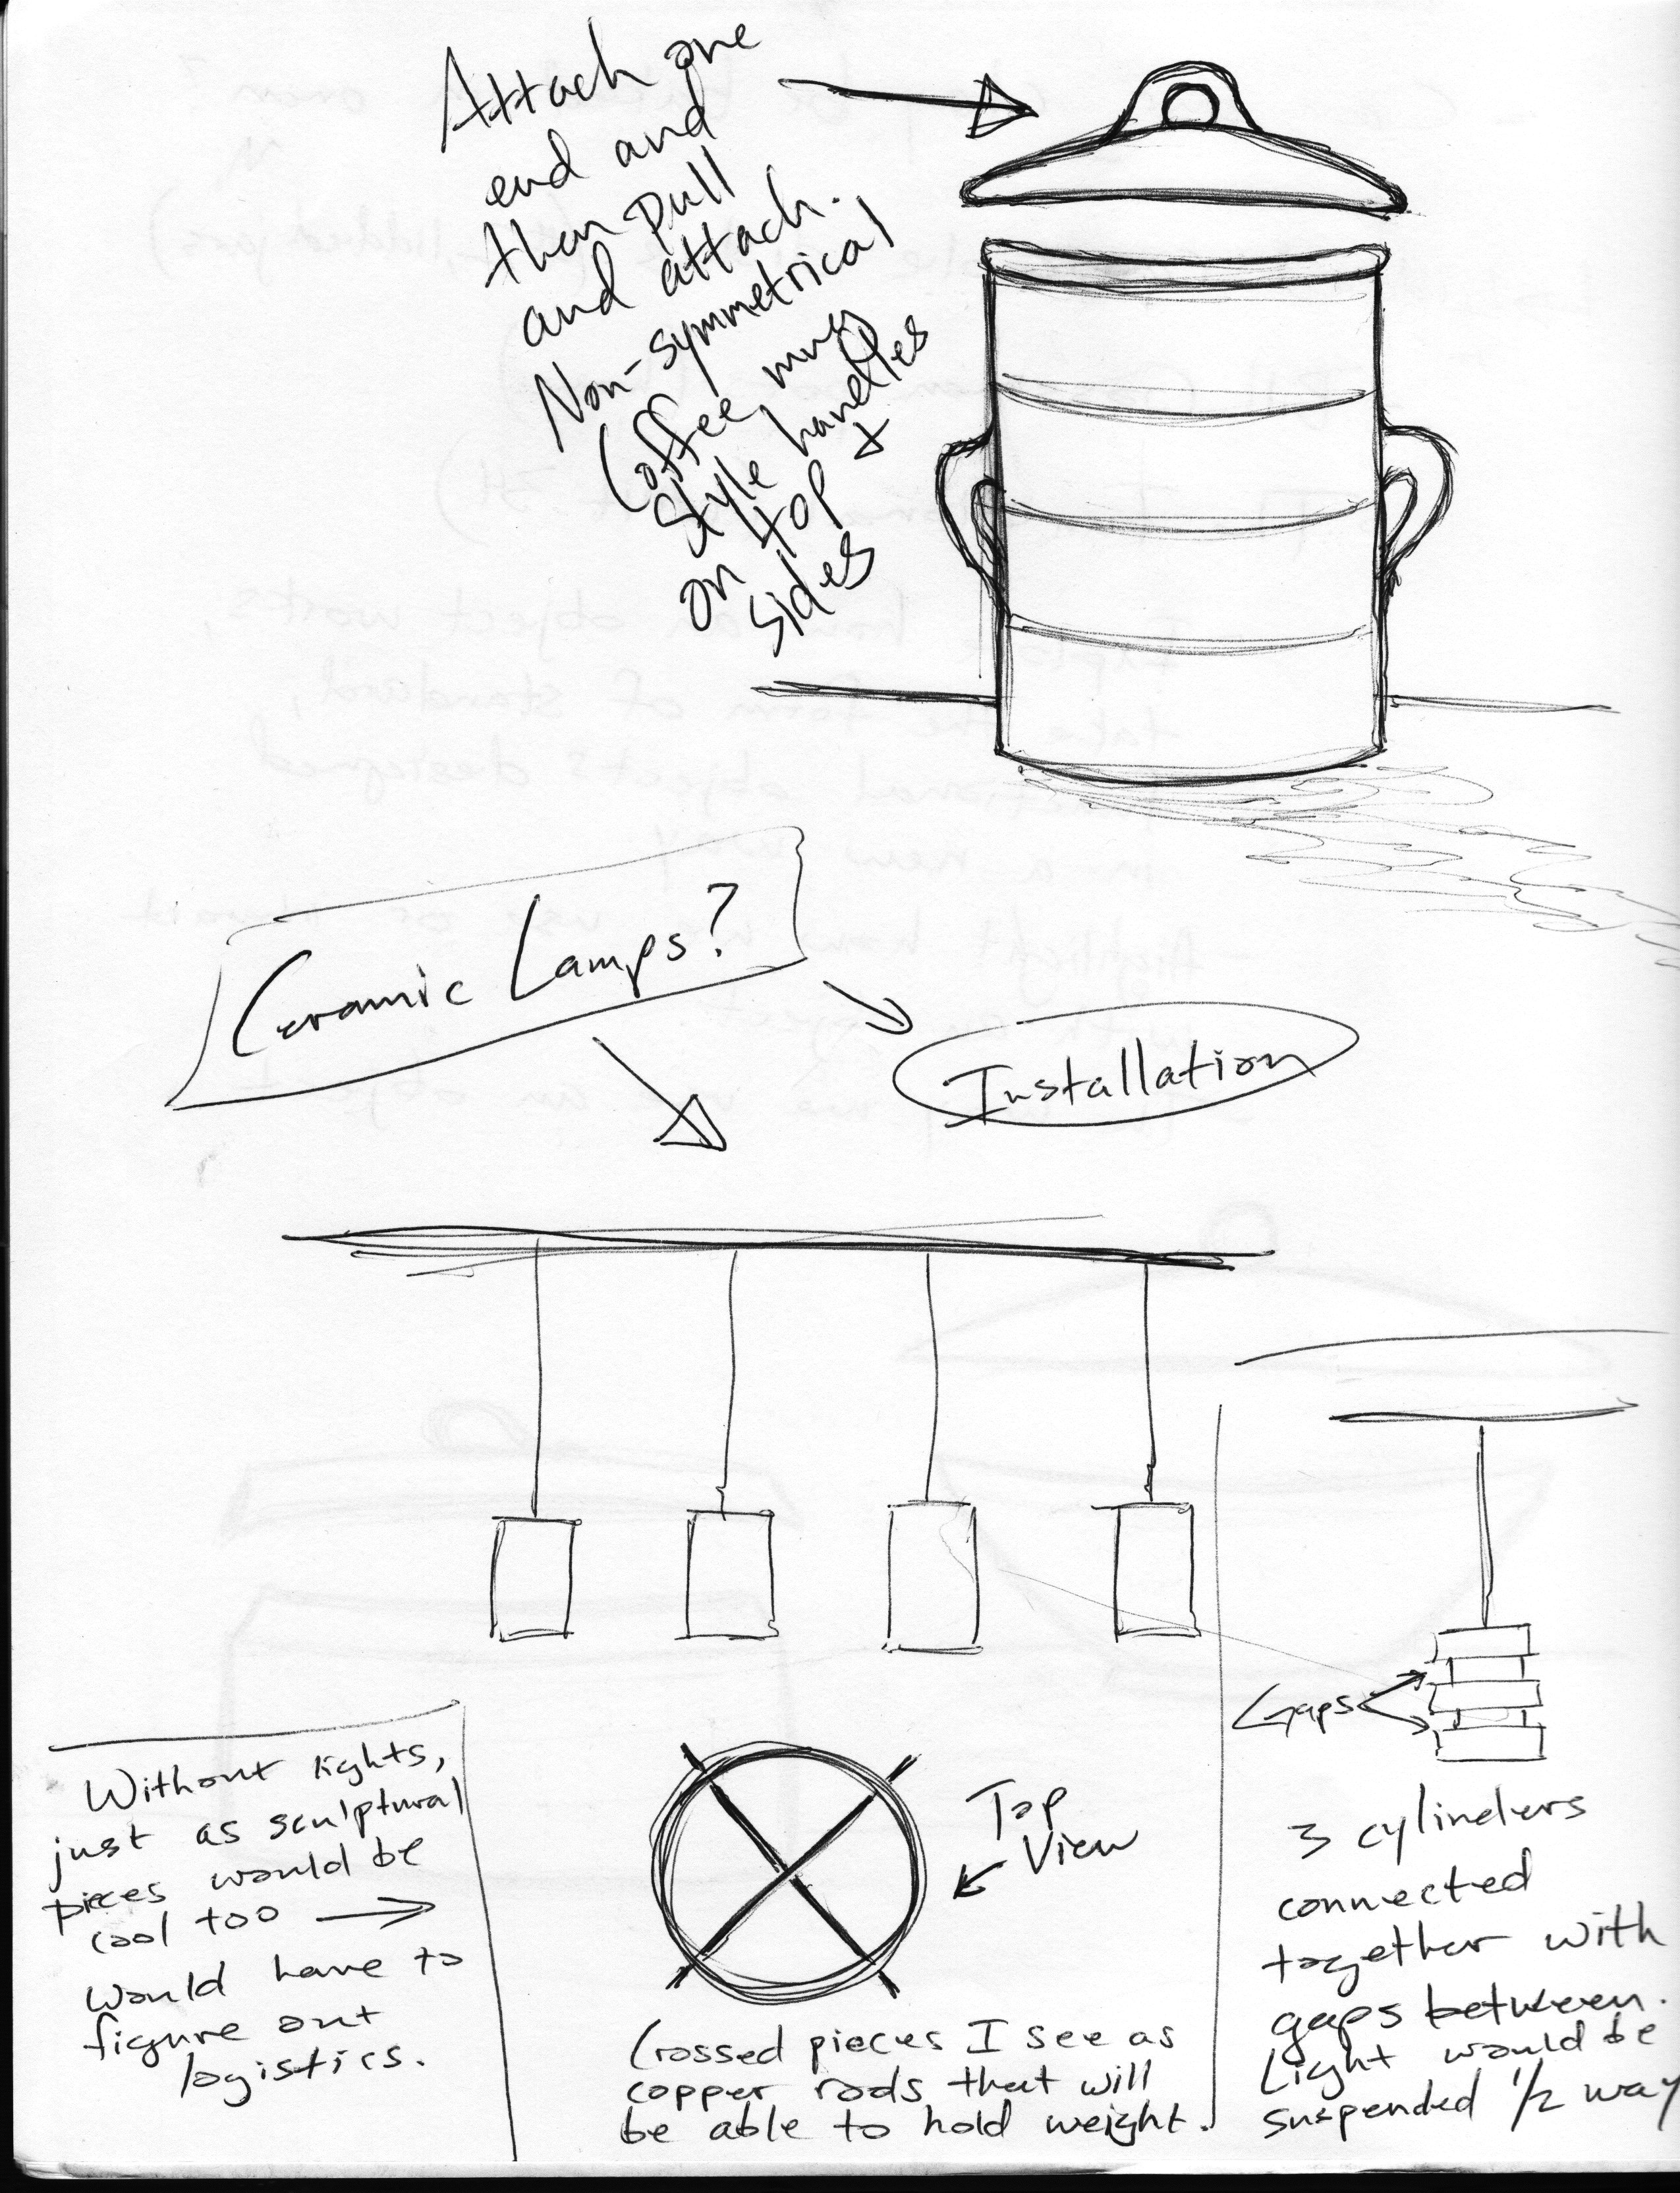 Attach one
end and
then pull
and attach.
Non-symmetrical
Coffee mug
style handles
on top +
sides
Ceramic Lamps?
Installation
Gaps
Without lights,
just as sculptural
pieces would be
cool too →
would have to
figure out
logistics.
Top
View
Crossed pieces I see as
copper rods that will
be able to hold weight.
3 cylinders
connected
together with
gaps between.
Light would be
suspended 1/2 way